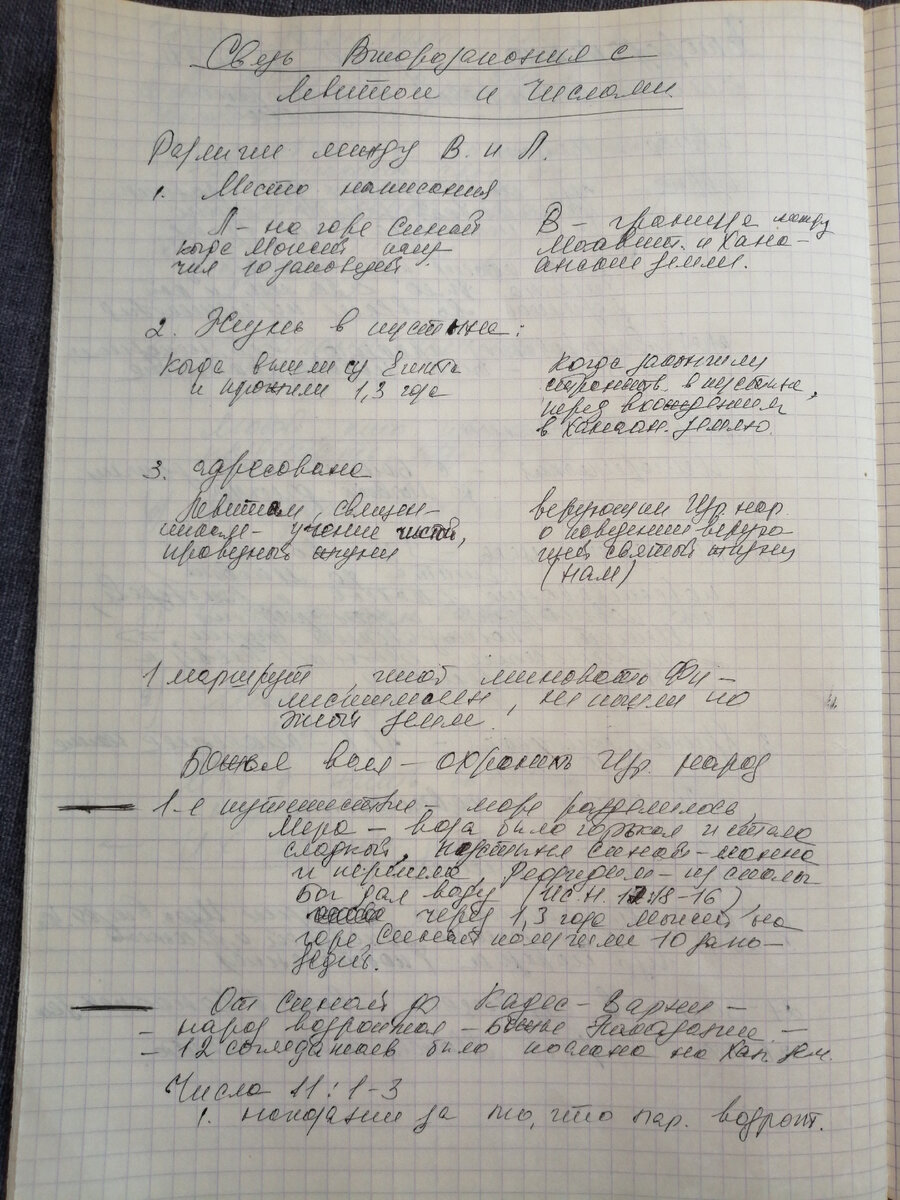 Связь Второзакония с
Левитом и Числами.
Различие между В. и Л.
1. Место написания
Л – на горе Синай
когда Моисей полу-
чил 10 заповедей
В – граница между
Моавит. и Хана-
анской земли.
2. Жизнь в пустыне:
Когда вышли из Египта
и прожили 1,3 года
Когда закончили
странств. в пустыне,
перед вхождением
в Ханаан. землю.
3. адресована
Левитам, священ-
учение чистой,
праведной жизни
верующим Изр. нар.
о поведении верую-
щих святой жизни
(нам)
1 маршрут, чтоб миновать Фи-
листимлян, не пошли по
этой земле.
Божья воля – охранить Изр. народ
1-е путешествие – море раздвинулось,
Мера – вода была горькая и стала
сладкой, пустыня Синай – манна
и перепела, Рефидим – из скалы
Бог дал воду (Исх. 17:18-16),
через 1,3 года Моисей на
горе Синай получили 10 запо-
ведь.
От Синай до Кадес-Варни –
– народ возроптал – Божье Наказание –
– 12 соглядатаев было послано на Хан. зем.
Числа 11:1-3
1. наказание за то, что нар. возропт.